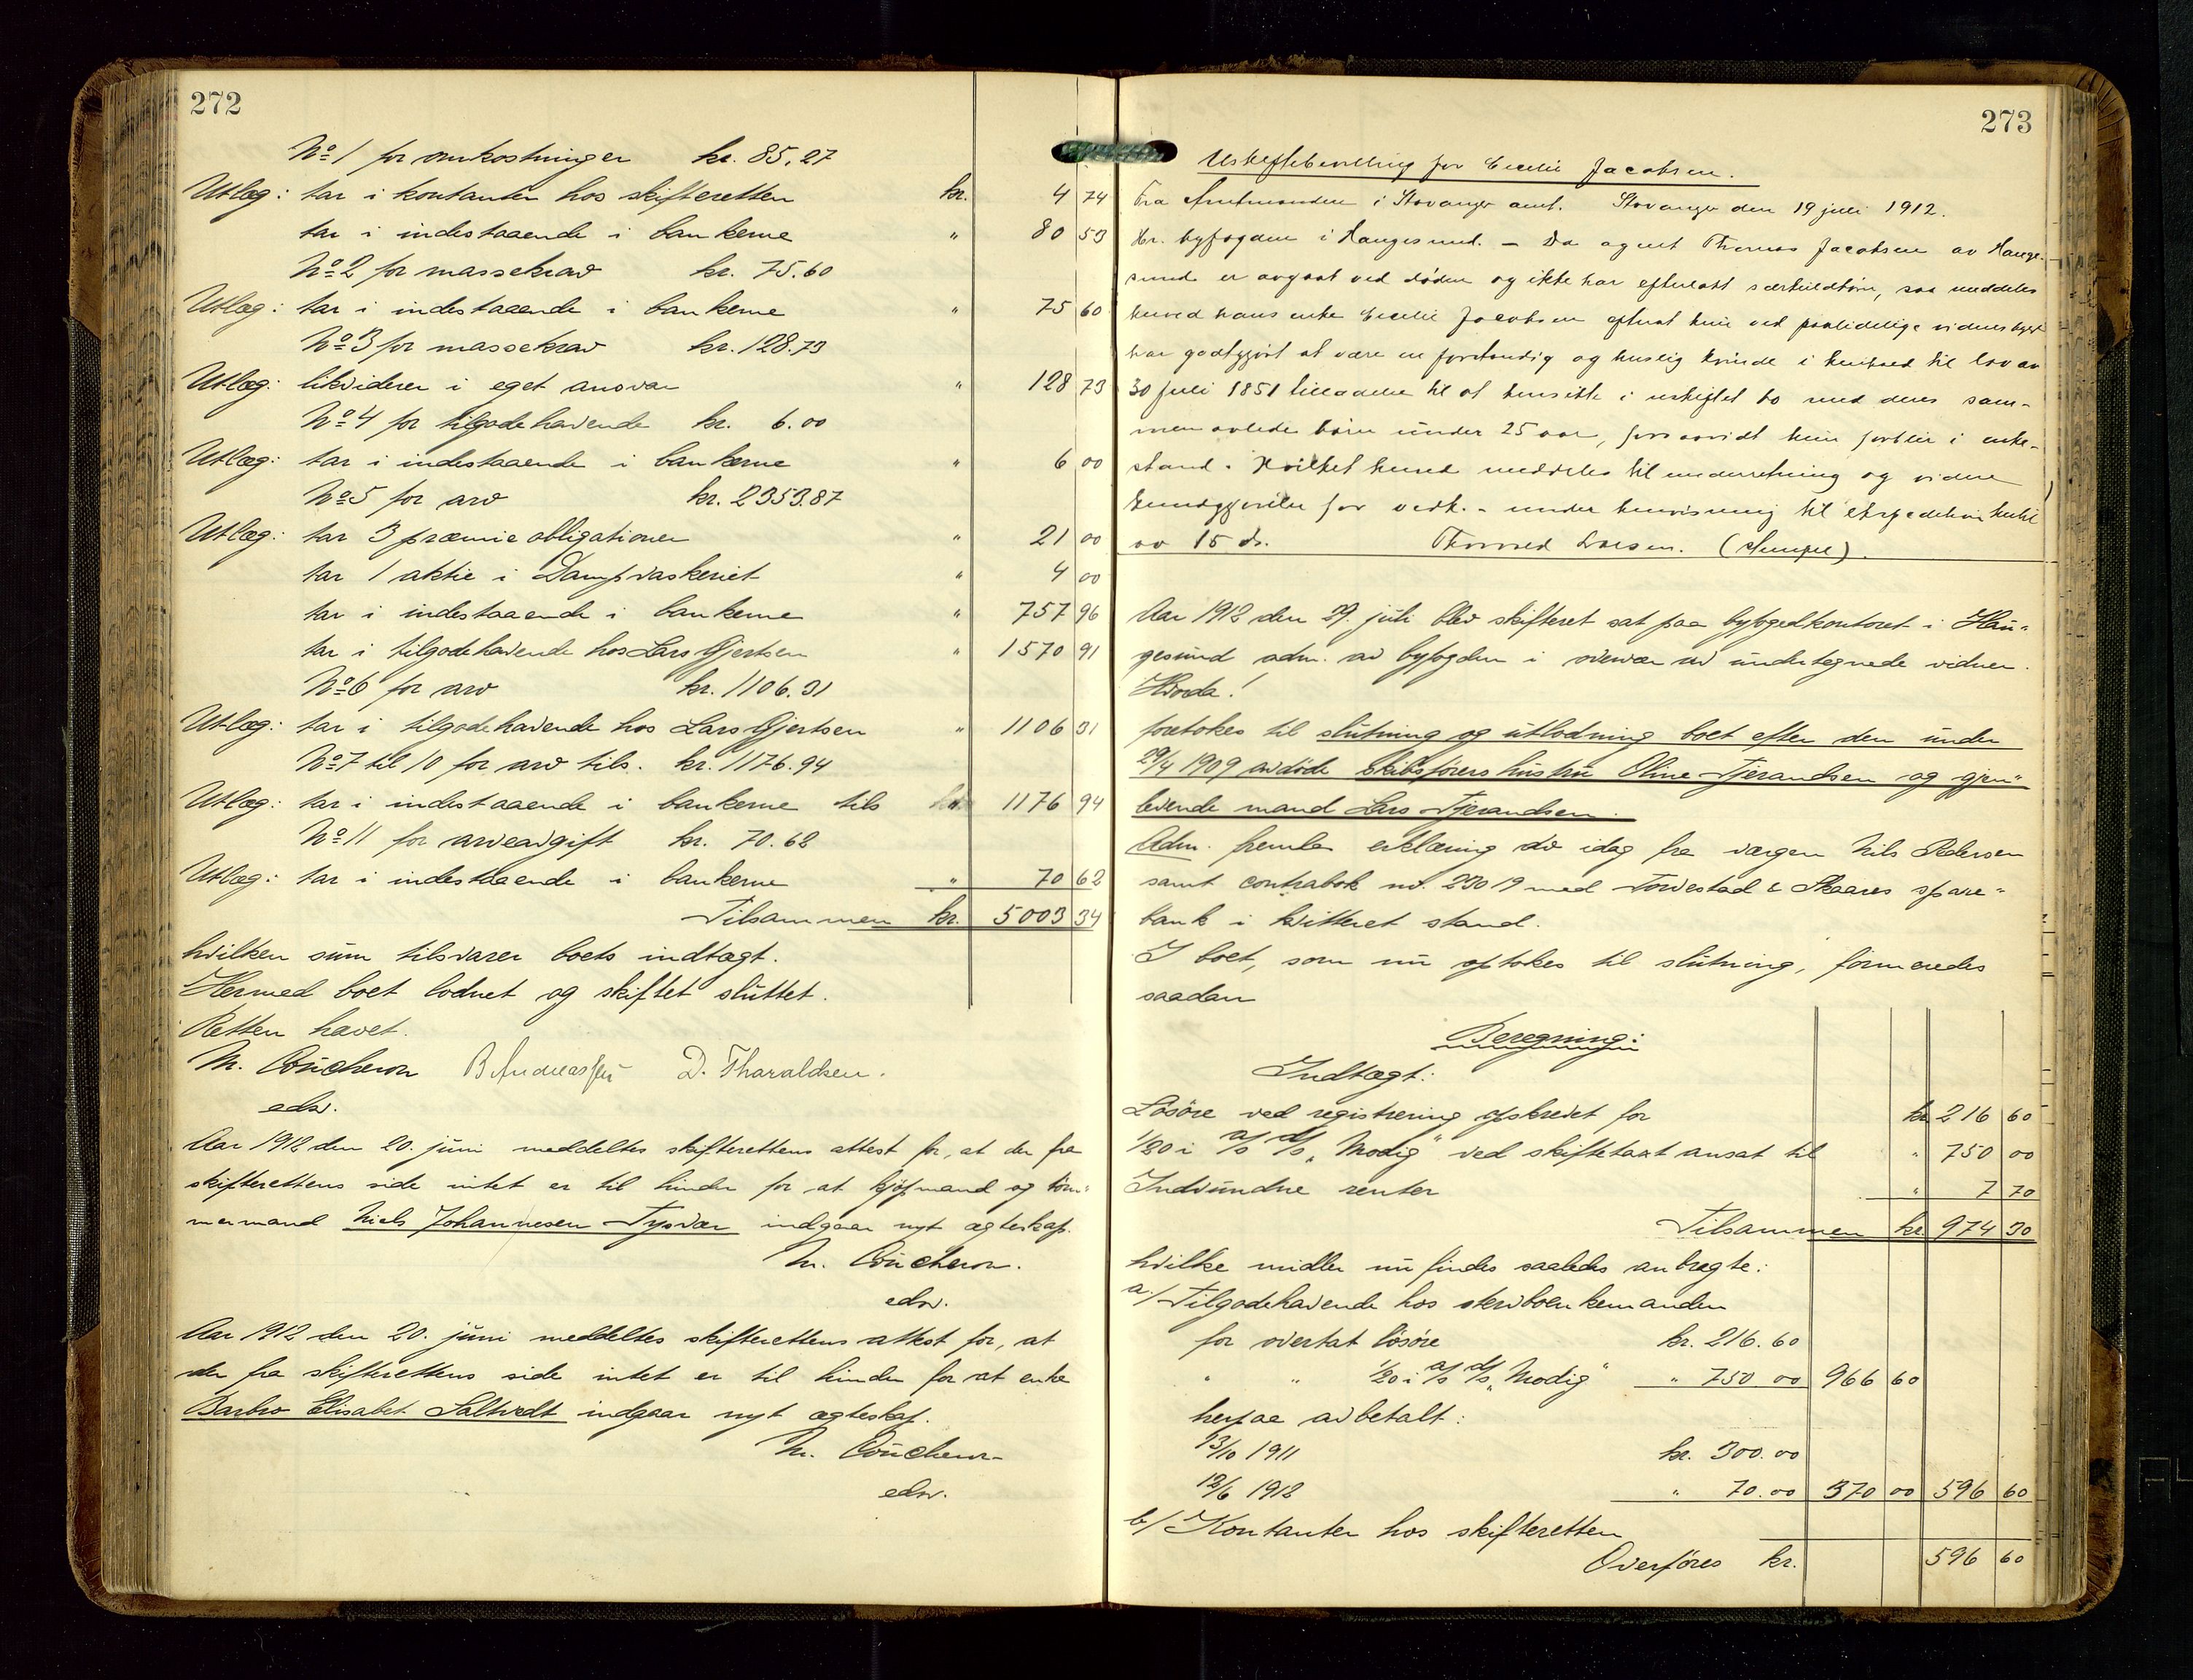 272
No 1 for omkostninger kr. 85,27
Utlæg: tar i kontanter hos skifteretten kr. 4 74
tar i indestaaende i bankerne " 80 53
No 2 for massekrav kr. 75.60
Utlæg: tar i indestaaende i bankerne " 75 60
No 3 for massekrav kr. 128.73
Utlæg: likviderer i eget ansvar " 128 73
No 4 for tilgodehavende kr. 6.00
Utlæg: tar i indestaaende i bankerne " 6 00
No 5 for arv kr. 2353.87
Utlæg: tar 3 præmie obligationer " 21 00
tar 1 aktie i Dampvaskeriet " 4 00
tar i indestaaende i bankerne " 757 96
tar i tilgodehavende hos Lars Gjertsen " 1570 91
No 6 for arv kr. 1106.31
Utlæg: tar i tilgodehavende hos Lars Gjertsen " 1106 31
No 7 til 10 for arv tils. kr. 1176.94
Utlæg: tar i indestaaende i bankerne tils " 1176 94
No 11 for arveavgift kr. 70.62
Utlæg: tar i indestaaende i bankerne " 70 62
Tilsammen kr. 5003 34
hvilken sum tilsvarer boets indtægt.
Hermed boet lodnet og skiftet sluttet.
Retten hævet.
M. Coucheron B. Andreassen D. Tharaldsen.
edsv.
Aar 1912 den 20. juni meddeltes skifterettens attest for, at der fra
skifterettens side intet er til hinder for at kjøpmand og töm-
mermand Niels Johannesen Tysvær indgaar nyt ægteskap.
M. Coucheron.
edsv.
Aar 1912 den 20. juni meddeltes skifterettens attest for, at
der fra skifterettens side intet er til hinder for at enke
Barbro Elisabet Saltvedt indgaar nyt ægteskap.
M. Coucheron
edsv.
273
Uskiftebevilling for Cecilie Jacobsen.
Fra Amtmanden i Stavanger amt. Stavanger den 19 juli 1912.
Hr. byfogden i Haugesund. - Da agent Thomas Jacobsen av Hauge-
sund er avgaat ved döden og ikke har efterlatt særkuldbörn, saa meddeles
herved hans enke Cecilie Jacobsen efterat hun ved paalidelige vidnesbyrd
har godtgjort at være en forstandig og huslig kvinde i henhold til lov av
30 juli 1851 tilladelse til at hensitte i uskiftet bo med deres sam-
men avlede börn under 25 aar, forsaavidt hun forblir i enke-
stand. Hvilket herved meddeles til underretning og videre
kundgjörelse for vedk. - under henvisning til ekspedition hertil
av 15 ds. (stempel).
Aar 1912 den 29. juli blev skifteret sat paa byfogedkontoret i Hau-
gesund adm. av byfogden i overvær av undertegnede vidner.
Hvorda!
foretokes til slutning og utlodning boet efter den under
29/4 1909 avdöde skibsförers hustru Oline Tjerandsen og gjen-
levende mand Lars Tjerandsen.
Adm. fremla erklæring av idag fra værgen Nils Pedersen
samt contrabok nr. 23019 med Torvestad & Skaares spare-
bank i kvitteret stand.
I boet, som nu optokes til slutning, formeredes
saadan
Beregning:
Indtægt:
Lösöre ved registrering opskrevet for kr. 216 60
1/20 i a/s d/s "Modig" ved skiftetaxt ansat til " 750 00
Indvundne renter " 7 70
Tilsammen kr 974 30
hvilke midler nu findes saaledes anbragte:
a/ Tilgodehavende hos skervboenkemanden
for overtat lösöre kr. 216.60
" " 1/20 i a/s d/s "Modig" " 750 00 966 60
herpaa avbetalt:
13/10 1911 kr. 300.00
12/6 1912 " 70.00 370 00 596 60
b/ Kontanter hos skifteretten
Overföres kr. 596 60